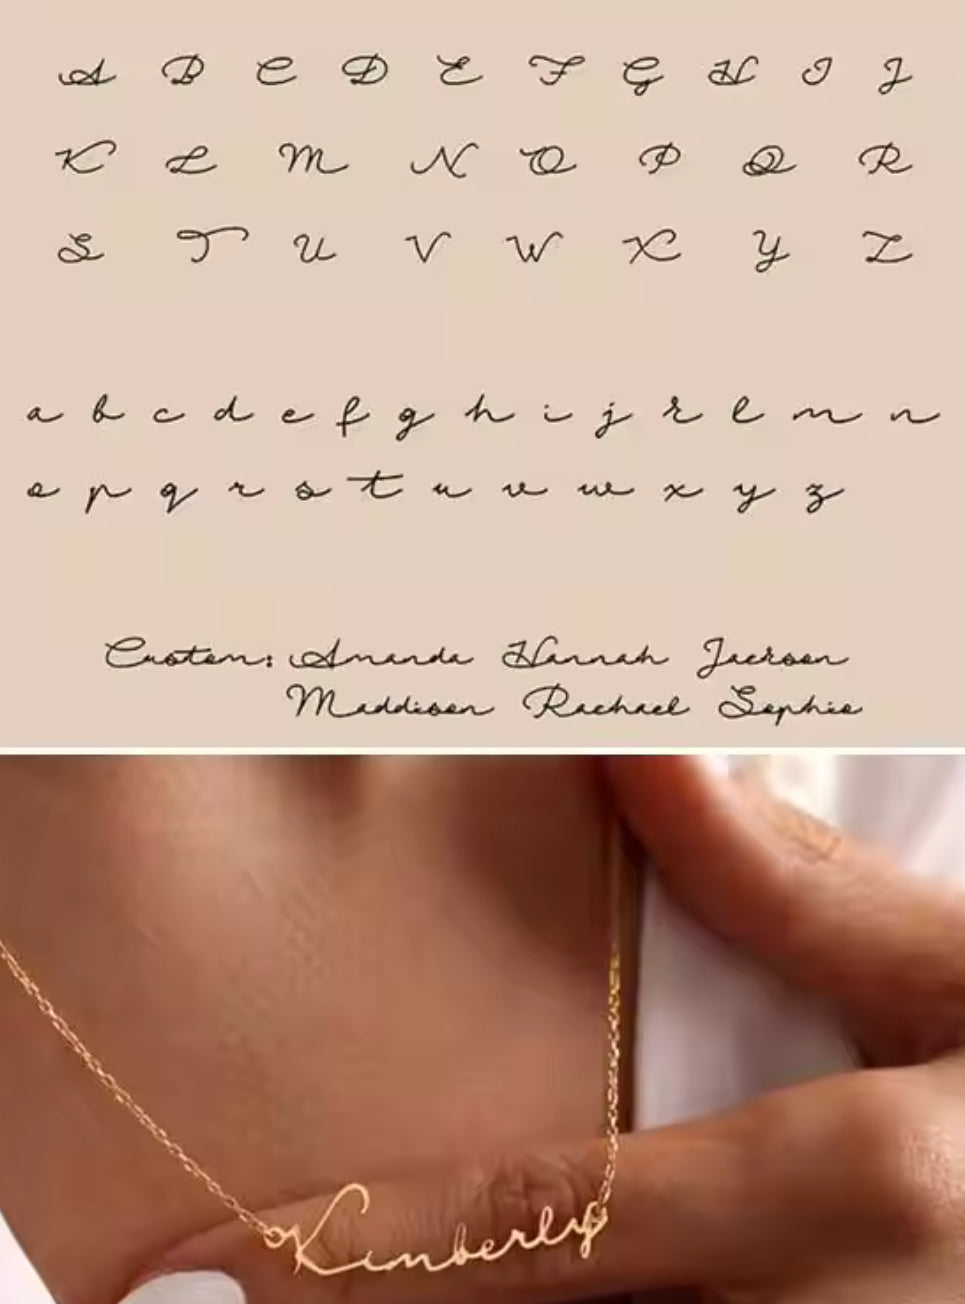 A B C D E F G H I J
K L M N O P Q R
S T U V W X Y Z
a b c d e f g h i j k l m n
o p q r s t u v w x y z
Custom: Amanda Hannah Jackson
Maddison Rachael Sophie
Kimberly